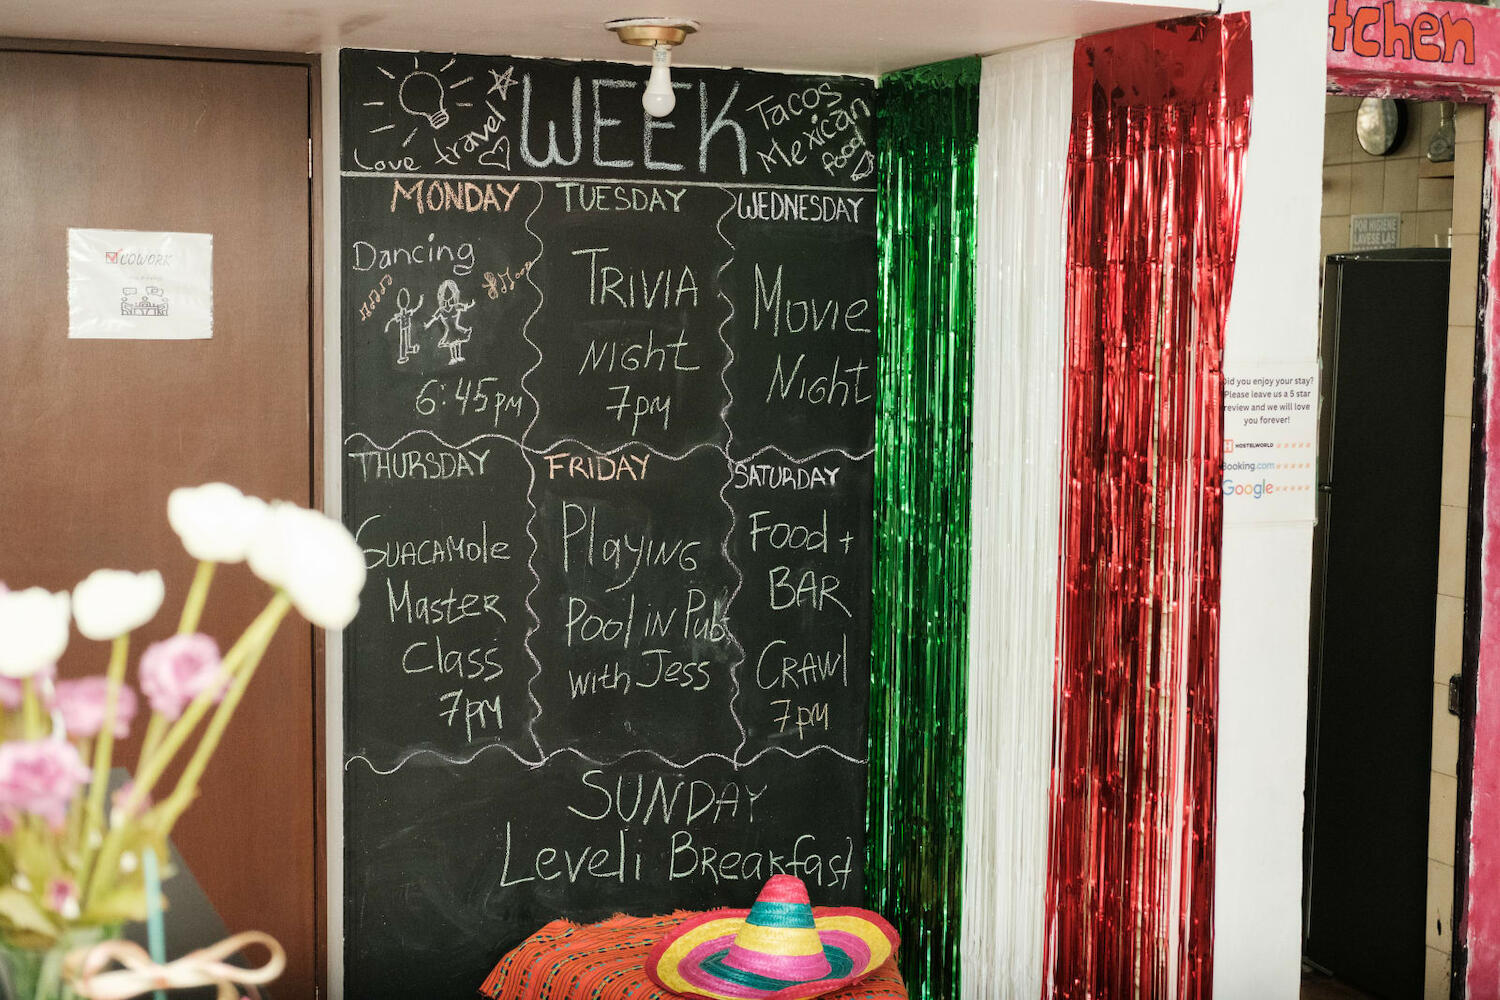 WEEK
Love travel
Tacos
Mexican
food
MONDAY
Dancing
6:45pm
TUESDAY
TRIVIA
NIGHT
7pm
WEDNESDAY
Movie
Night
THURSDAY
GUACAMole
Master
Class
7pm
FRIDAY
PlayiNG
Pool iN Pub
with Jess
SATURDAY
Food +
BAR
CRAWl
7pm
SUNDAY
Leveli Breakfast
COWORK
tchen
POR HIGIENE
LAVESE LAS
Did you enjoy your stay?
Please leave us a 5 star
review and we will love
you forever!
HOSTELWORLD
Booking.com
Google